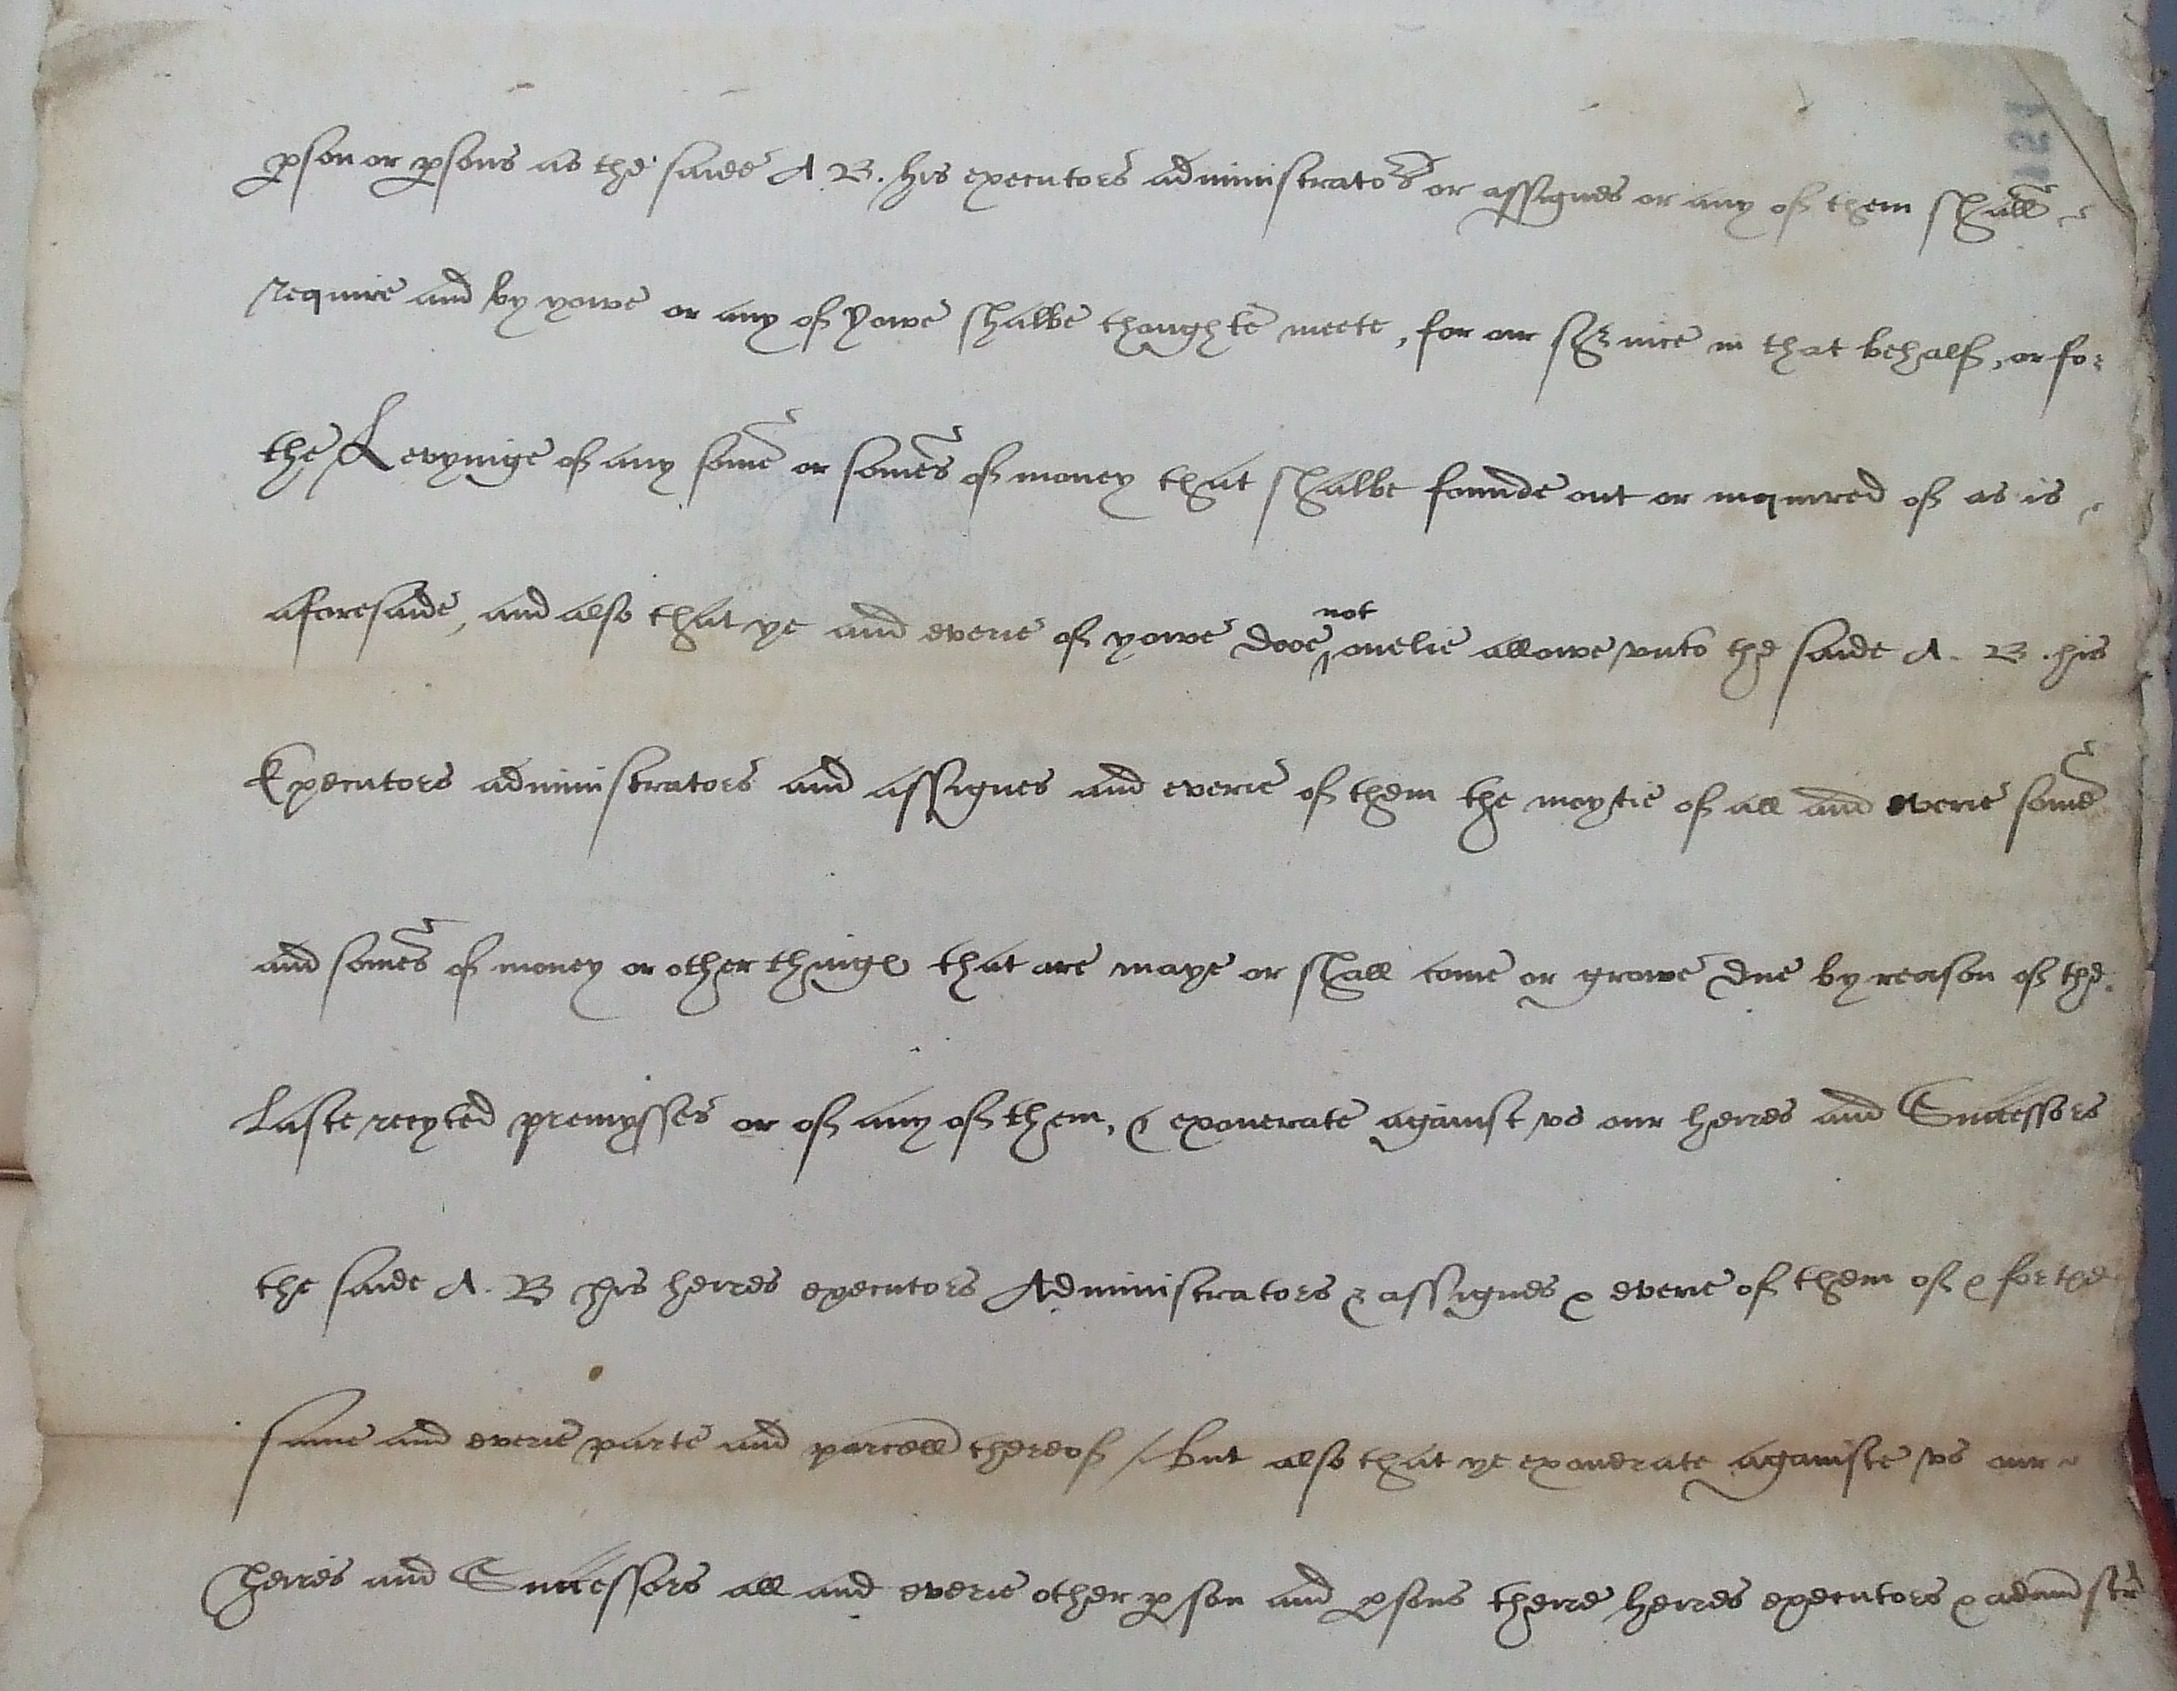 pson or psons as the saide A. B. his executors administrators or assignes or any of them shall
require and by yowe or any of yowe shalbe thoughte meete, for our seruice in that behalf, or for
the Levyinge of any some or somes of money that shalbe founde out or inquired of as is
aforesaide, and also that ye and everie of yowe dooe ^not onelie allowe vnto the saide A. B. his
Executors administrators and assignes and everie of them the moytie of all and everie some
and somes of money or other thinges that are maye or shall come or growe due by reason of the
Laste recyted premysses or of any of them, & exonerate against vs our heires and Successors
the saide A. B his heires executors Administrators & assignes & everie of them of & for the
same and everie parte and parcell thereof / But also that ye exonerate againste vs our
heires and Successors all and everie other pson and psons theire heires executors & administr